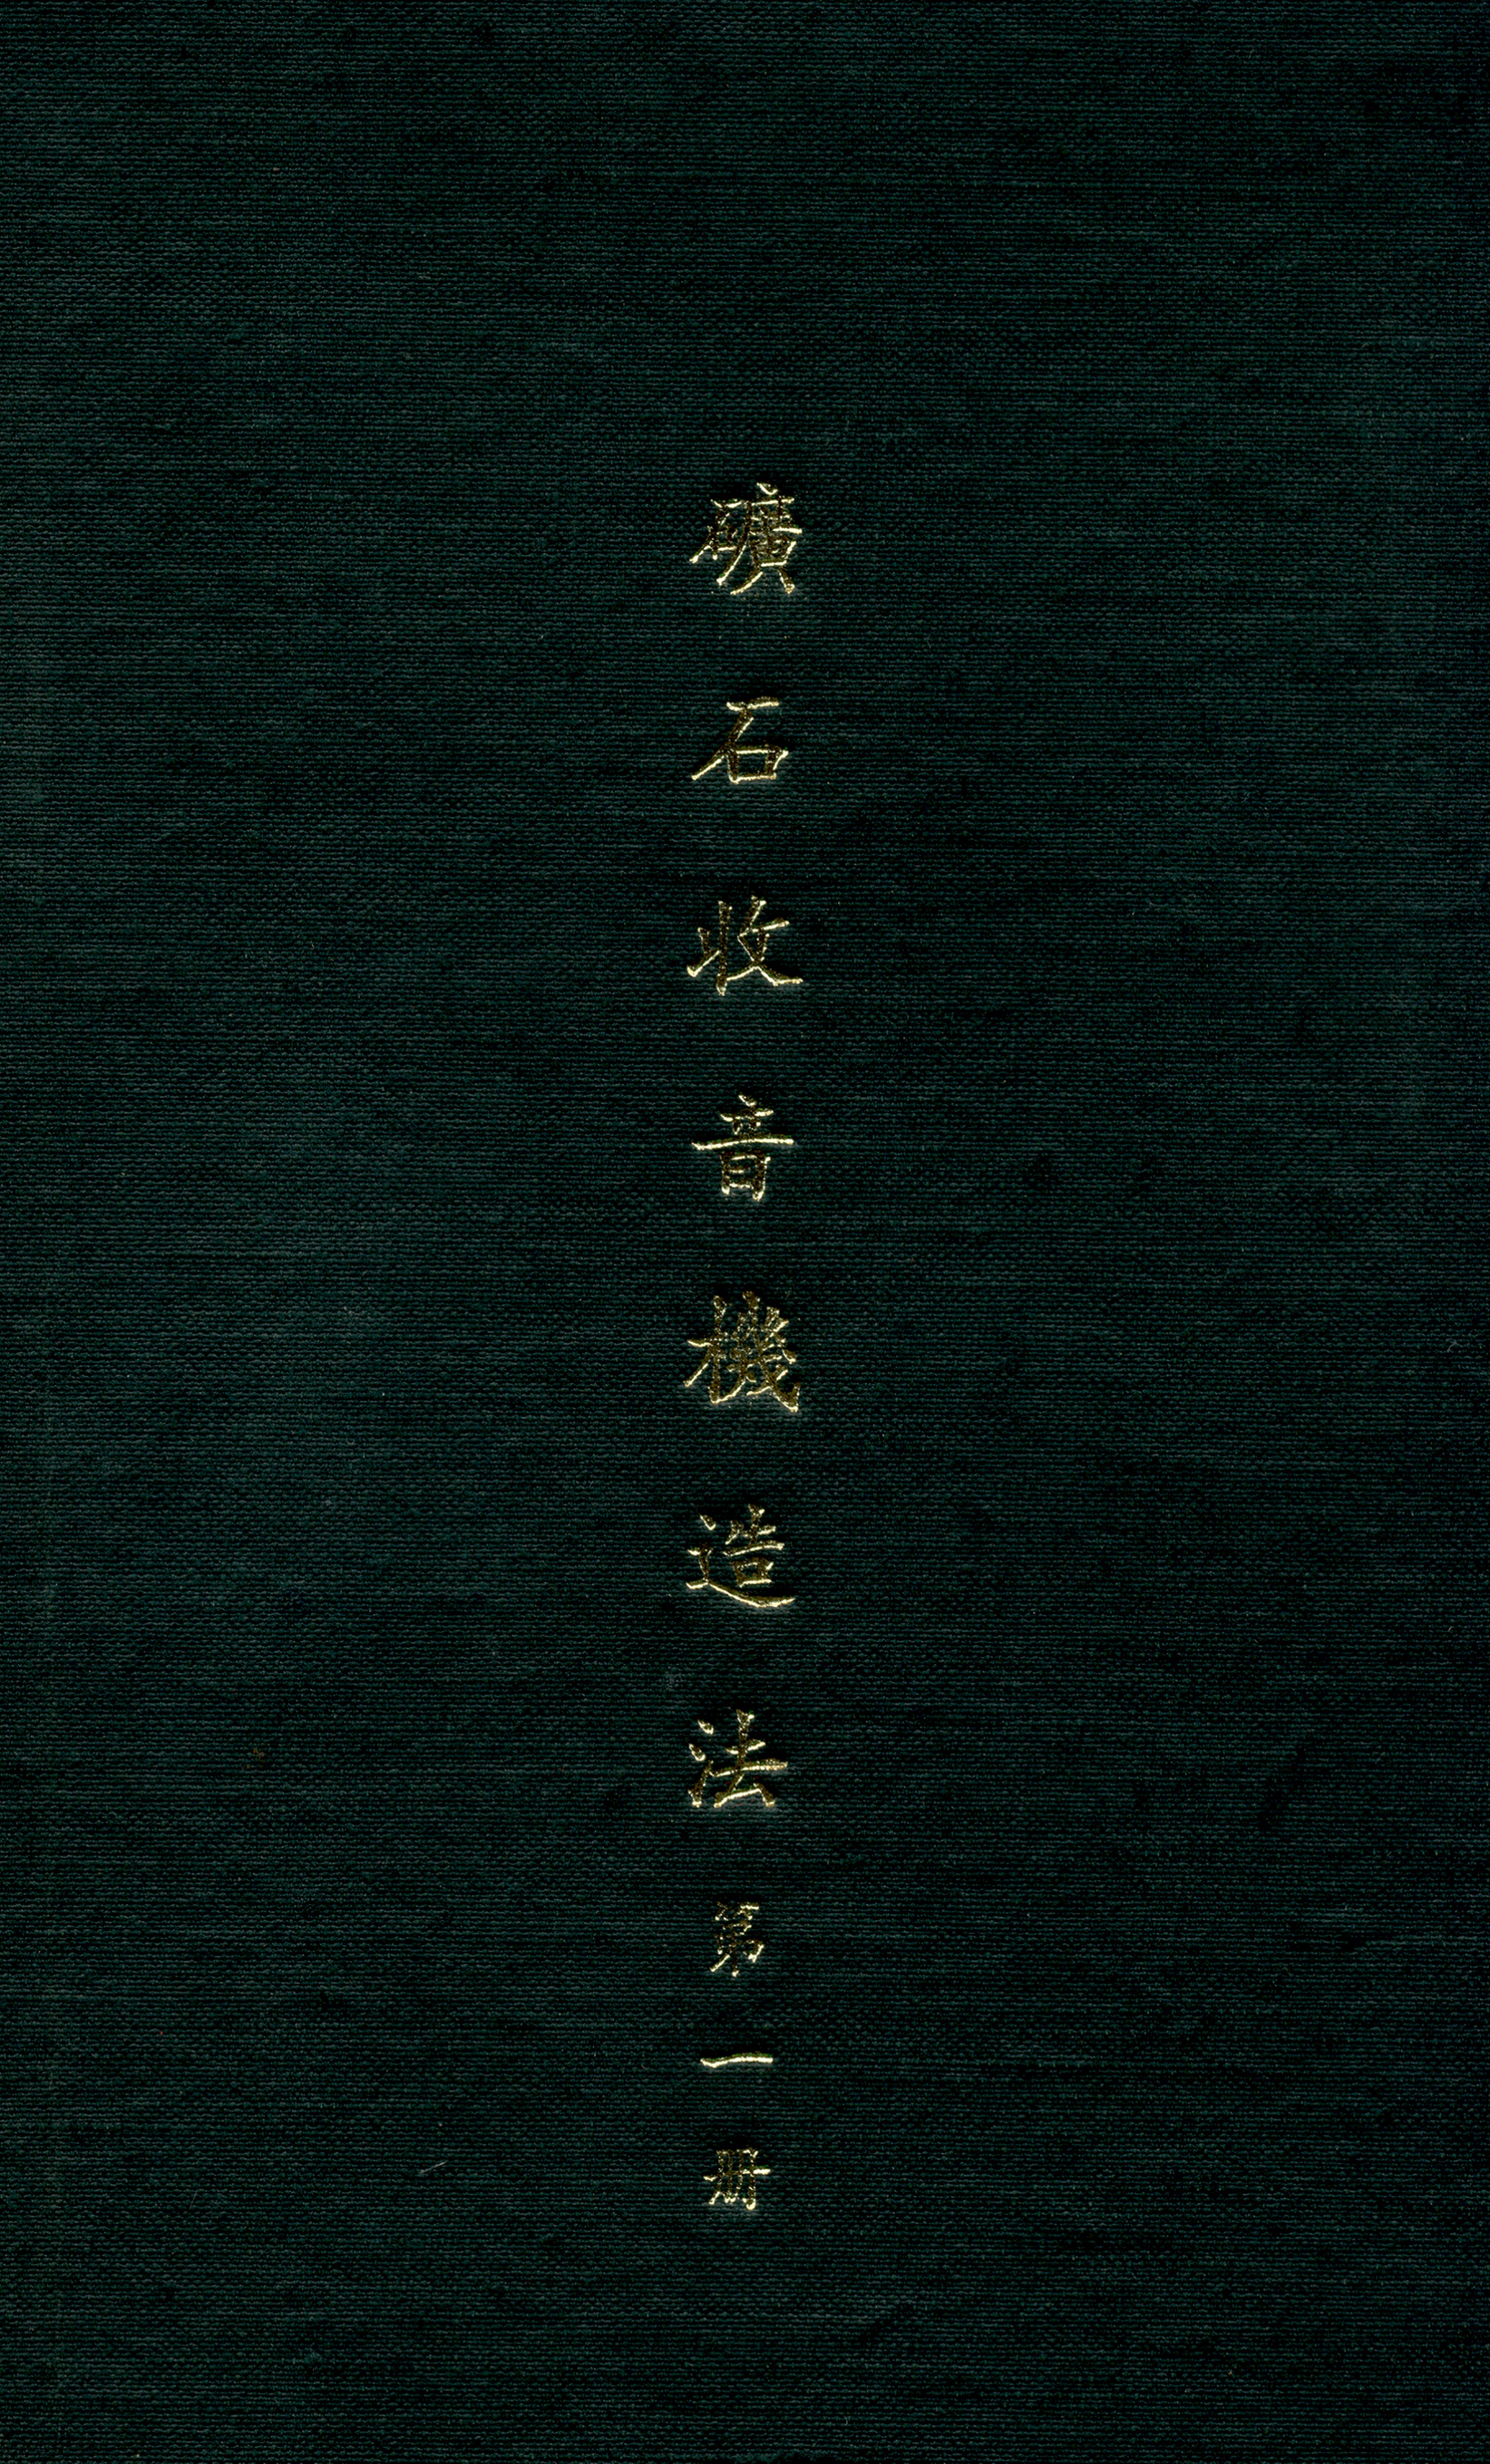 礦石收音機造法第一册